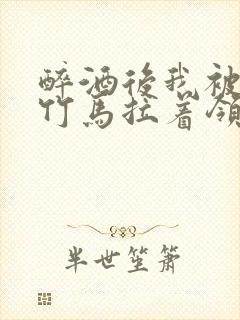 醉酒後我被
竹馬拉着領
半世笙簫